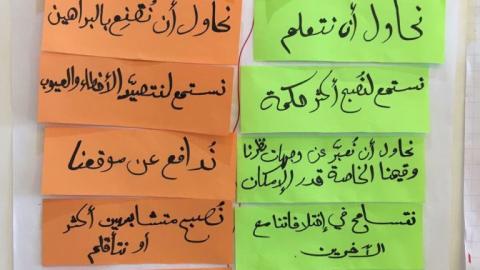 نحاول أن نتعلم
نحاول أن نُقنِع بالبراهين
نستمع لنُصبح أكثر حكمة
نستمع لنتصيّد الأخطاء والعيوب
نحاول أن نُعبّر عن وجهات نظرنا
وقيمنا الخاصة قدر الإمكان
نُدافع عن موقفنا
نتسامح في إختلافاتنا مع
الآخرين.
نُصبح متشابهين أكثر
أو نتأقلم